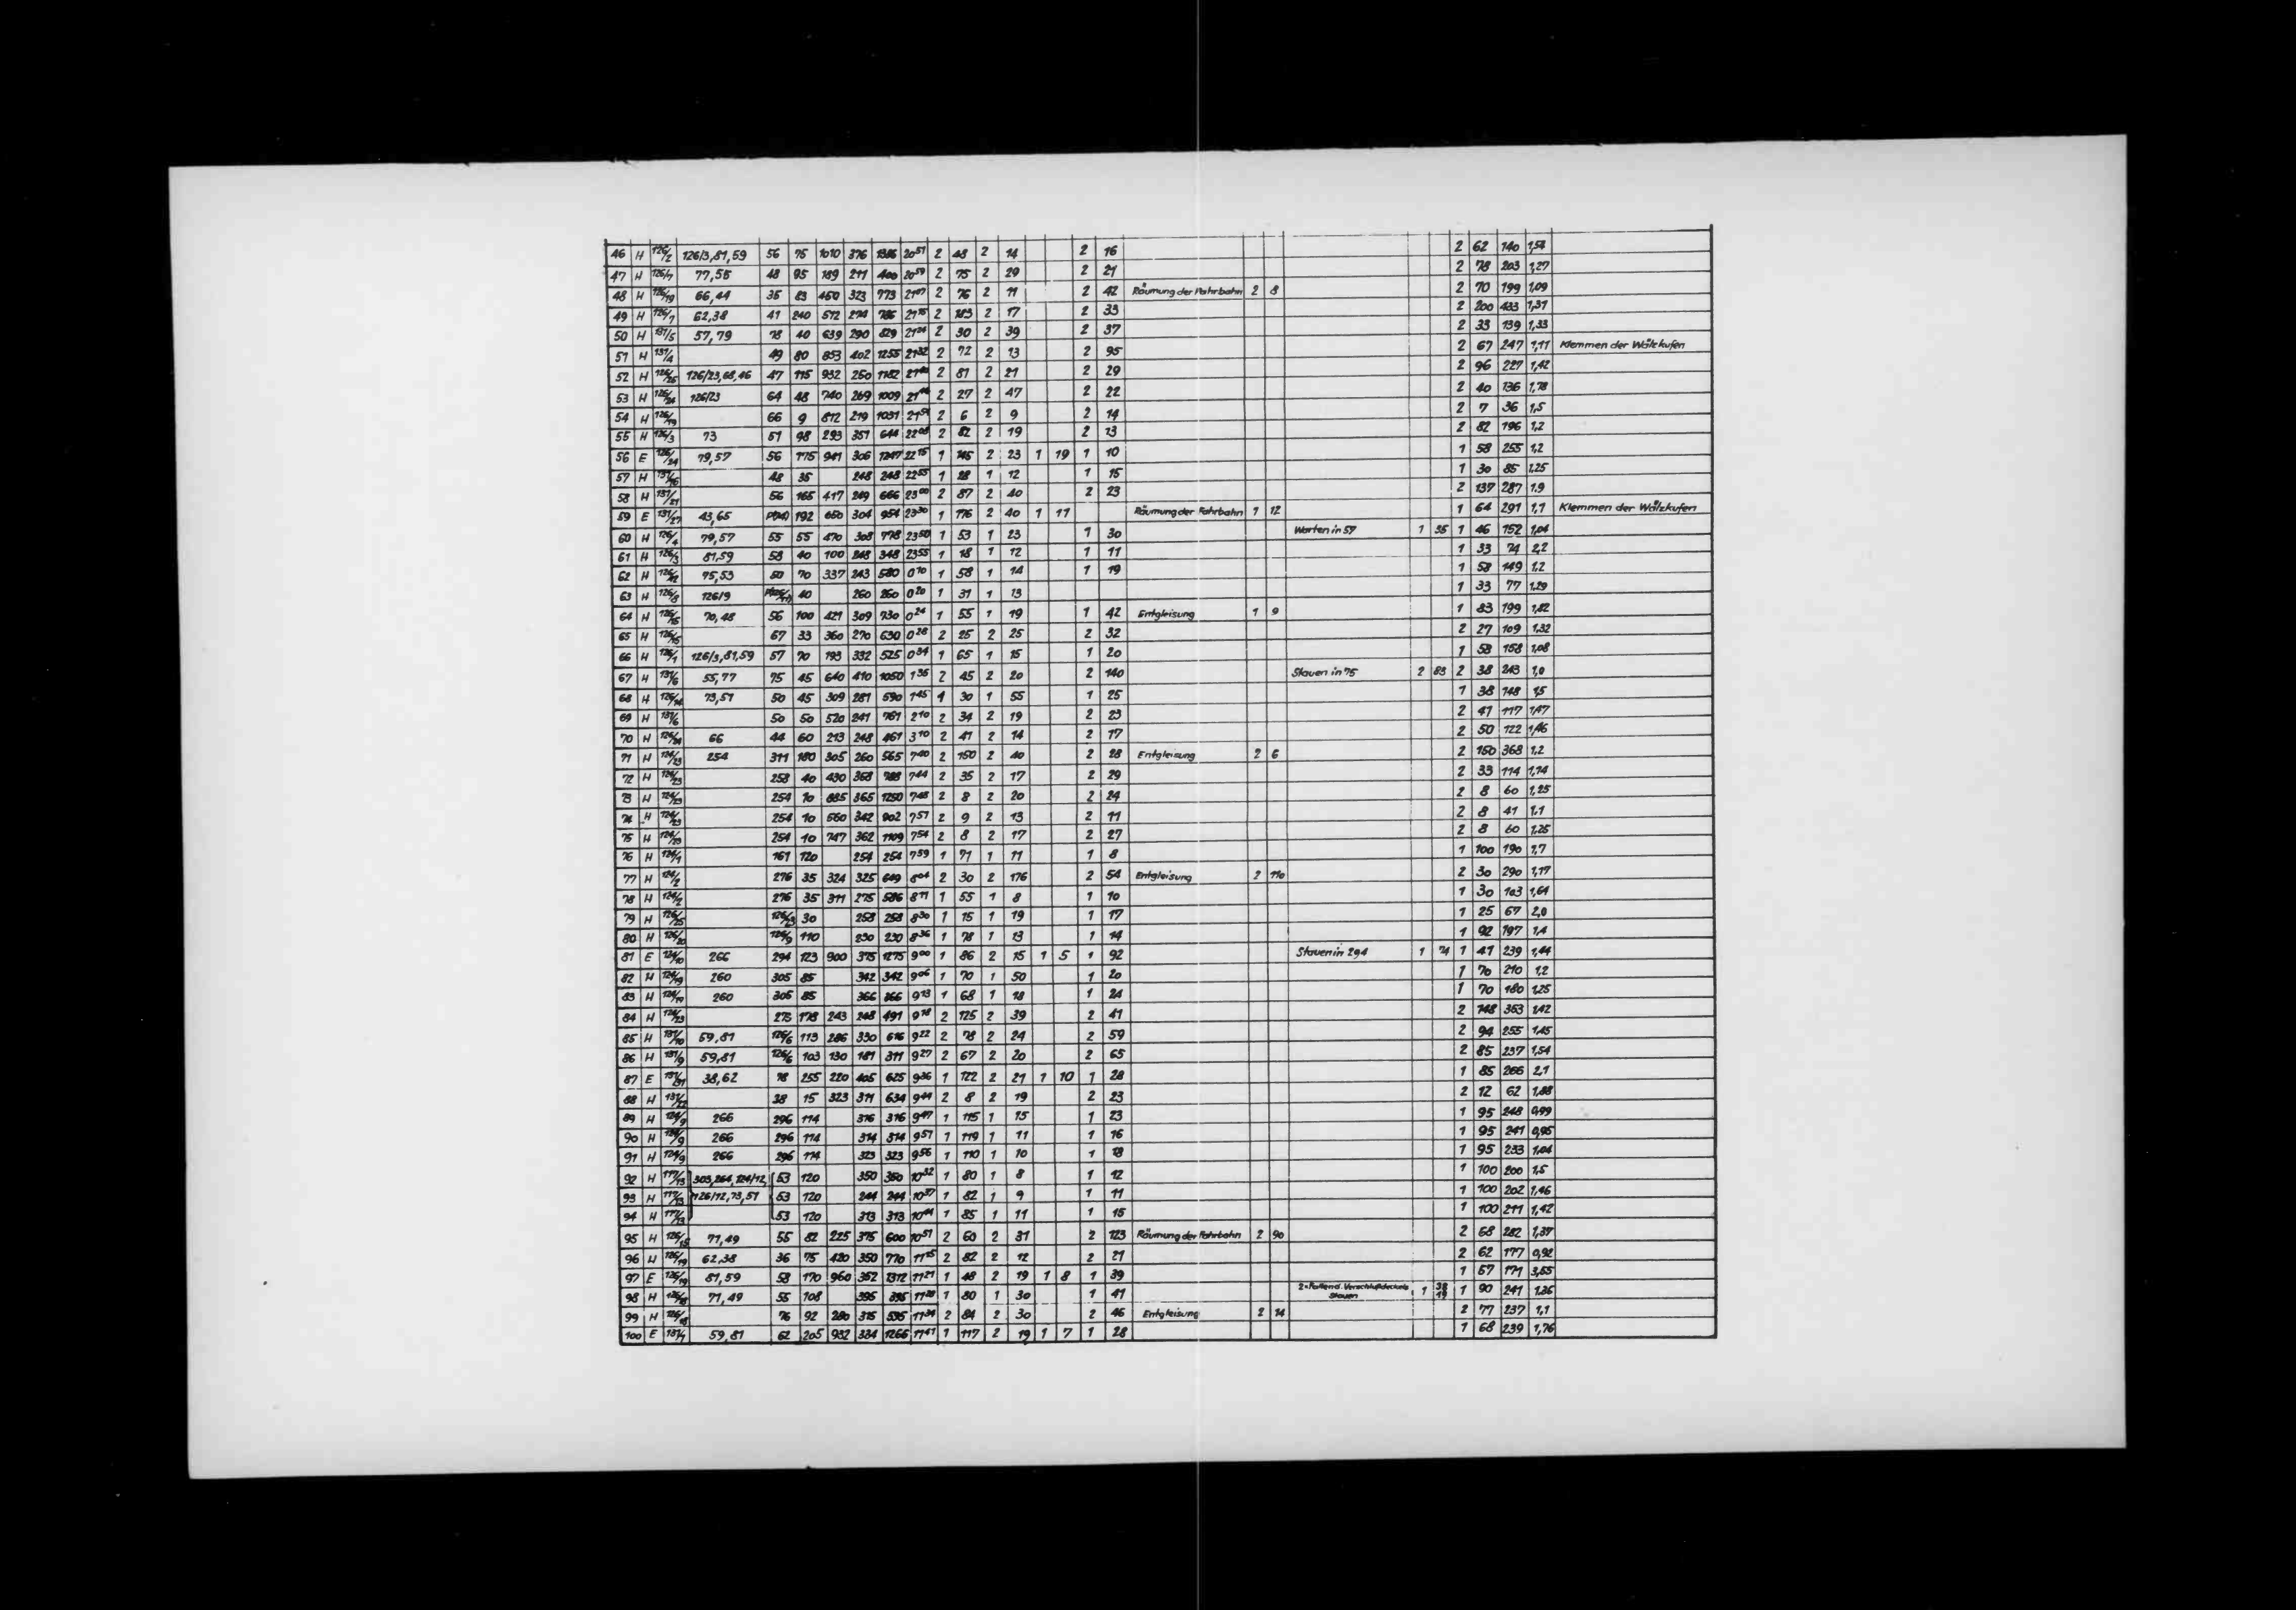 46 H 126/2 126/3,81,59 56 75 1010 376 1386 20⁵¹ 2 48 2 14 2 16 2 62 140 1,54
47 H 126/7 77,55 48 95 189 211 400 20⁵⁹ 2 75 2 29 2 21 2 78 203 1,27
48 H 126/19 66,44 35 83 450 323 773 21⁰⁷ 2 76 2 11 2 42 Räumung der Fahrbahn 2 8 2 70 199 1,09
49 H 126/7 62,38 41 240 512 274 786 21¹⁵ 2 183 2 17 2 33 2 200 433 1,31
50 H 131/5 57,79 78 40 639 290 829 21²⁴ 2 30 2 39 2 37 2 33 139 1,33
51 H 131/4 49 80 853 402 1255 21³² 2 72 2 13 2 95 2 67 247 1,11 Klemmen der Wälzkufen
52 H 126/25 126/23,68,46 47 115 932 250 1182 21⁴⁰ 2 81 2 21 2 29 2 96 227 1,42
53 H 126/24 126/23 64 48 740 269 1009 2 27 2 47 2 22 2 40 136 1,78
54 H 126/19 66 9 812 219 1031 2 6 2 9 2 14 2 7 36 1,5
55 H 126/3 73 51 98 293 351 644 22⁰⁸ 2 82 2 19 2 13 2 82 196 1,2
56 E 126/24 79,57 56 175 941 306 1247 22¹⁵ 1 145 2 23 1 19 1 10 1 58 255 1,2
57 H 131/16 48 35 248 248 22⁵⁵ 1 28 1 12 1 15 1 30 85 1,25
58 H 131/21 56 165 417 249 666 23⁰⁰ 2 87 2 40 2 23 2 137 287 1,9
59 E 131/27 43,65 192 650 304 954 23³⁰ 1 176 2 40 1 11 Räumung der Fahrbahn 1 12 1 64 291 1,1 Klemmen der Wälzkufen
60 H 126/4 79,57 55 55 470 308 778 23⁵⁰ 1 53 1 23 1 30 Warten in 57 1 35 1 46 152 1,04
61 H 126/3 81,59 58 40 100 248 348 23⁵⁵ 1 18 1 12 1 11 1 33 74 2,2
62 H 126/12 75,53 50 70 337 243 580 0¹⁰ 1 58 1 14 1 19 1 58 149 1,2
63 H 126/8 126/9 40 260 260 0²⁰ 1 31 1 13 1 33 77 1,29
64 H 126/15 70,48 56 100 421 309 730 0²⁴ 1 55 1 19 1 42 Entgleisung 1 9 1 83 199 1,82
65 H 126/15 67 33 360 270 630 0²⁸ 2 25 2 25 2 32 2 27 109 1,32
66 H 126/1 126/3,81,59 57 70 193 332 525 0³⁴ 1 65 1 15 1 20 1 58 158 1,08
67 H 131/6 55,77 75 45 640 410 1050 1³⁵ 2 45 2 20 2 140 Stauen in 75 2 83 2 38 243 1,0
68 H 126/14 73,51 50 45 309 281 590 1⁴⁵ 1 30 1 55 1 25 1 38 148 1,5
69 H 131/6 50 50 520 241 761 2¹⁰ 2 34 2 19 2 23 2 41 117 1,47
70 H 126/24 66 44 60 213 248 461 3¹⁰ 2 41 2 14 2 17 2 50 122 1,46
71 H 124/23 254 311 180 305 260 565 7⁴⁰ 2 150 2 40 2 28 Entgleisung 2 6 2 150 368 1,2
72 H 124/23 258 40 430 358 788 7⁴⁴ 2 35 2 17 2 29 2 33 114 1,14
73 H 124/23 254 10 885 365 1250 7⁴⁸ 2 8 2 20 2 24 2 8 60 1,25
74 H 124/23 254 10 560 342 902 7⁵¹ 2 9 2 13 2 11 2 8 41 1,1
75 H 124/23 254 10 747 362 1109 7⁵⁴ 2 8 2 17 2 27 2 8 60 1,25
76 H 124/1 161 120 254 254 7⁵⁹ 1 71 1 11 1 8 1 100 190 1,7
77 H 124/2 276 35 324 325 649 8⁰⁴ 2 30 2 176 2 54 Entgleisung 2 110 2 30 290 1,17
78 H 124/2 276 35 311 275 586 8¹¹ 1 55 1 8 1 10 1 30 103 1,64
79 H 126/25 126/23 30 258 258 8³⁰ 1 15 1 19 1 17 1 25 67 2,0
80 H 126/20 126/9 110 230 230 8³⁶ 1 78 1 13 1 14 1 92 197 1,4
81 E 124/10 266 294 123 900 375 1275 9⁰⁰ 1 86 2 15 1 5 1 92 Stauen in 294 1 74 1 41 239 1,44
82 H 124/19 260 305 85 342 342 9⁰⁶ 1 70 1 50 1 20 1 70 210 1,2
83 H 124/19 260 305 85 366 366 9¹³ 1 68 1 18 1 24 1 70 180 1,25
84 H 124/23 275 178 243 248 491 9¹⁸ 2 125 2 39 2 41 2 148 353 1,42
85 H 131/10 59,81 126/6 113 286 330 616 9²² 2 78 2 24 2 59 2 94 255 1,45
86 H 131/9 59,81 126/6 103 130 181 311 9²⁷ 2 67 2 20 2 65 2 85 237 1,54
87 E 131/31 38,62 78 255 220 405 625 9³⁶ 1 122 2 21 1 10 1 28 1 85 266 2,1
88 H 131/22 38 15 323 311 634 9⁴⁴ 2 8 2 19 2 23 2 12 62 1,88
89 H 124/9 266 296 114 316 316 9⁴⁷ 1 115 1 15 1 23 1 95 248 0,99
90 H 124/9 266 296 114 314 314 9⁵¹ 1 119 1 11 1 16 1 95 241 0,95
91 H 124/9 266 296 114 323 323 9⁵⁶ 1 110 1 10 1 18 1 95 233 1,04
92 H 117/13 303,264,124/12, 53 120 350 350 10³² 1 80 1 8 1 12 1 100 200 1,5
93 H 117/13 126/12,73,51 53 120 244 244 10³⁷ 1 82 1 9 1 11 1 100 202 1,46
94 H 117/13 53 120 313 313 10⁴⁴ 1 85 1 11 1 15 1 100 211 1,42
95 H 126/15 71,49 55 82 225 375 600 10⁵¹ 2 60 2 31 2 123 Räumung der Fahrbahn 2 90 2 68 282 1,37
96 H 126/19 62,38 36 75 420 350 770 11¹⁵ 2 82 2 12 2 21 2 62 177 0,92
97 E 126/19 81,59 58 170 960 352 1312 11²¹ 1 48 2 19 1 8 1 39 1 57 171 3,55
98 H 126/18 71,49 55 108 395 395 11²⁸ 1 80 1 30 1 41 Stauen 1 1 90 241 1,36
99 H 126/18 76 92 280 315 595 11³⁴ 2 84 2 30 2 46 Entgleisung 2 14 2 77 237 1,1
100 E 131/1 59,81 62 205 932 334 1266 11⁴¹ 1 117 2 19 1 7 1 28 1 68 239 1,76